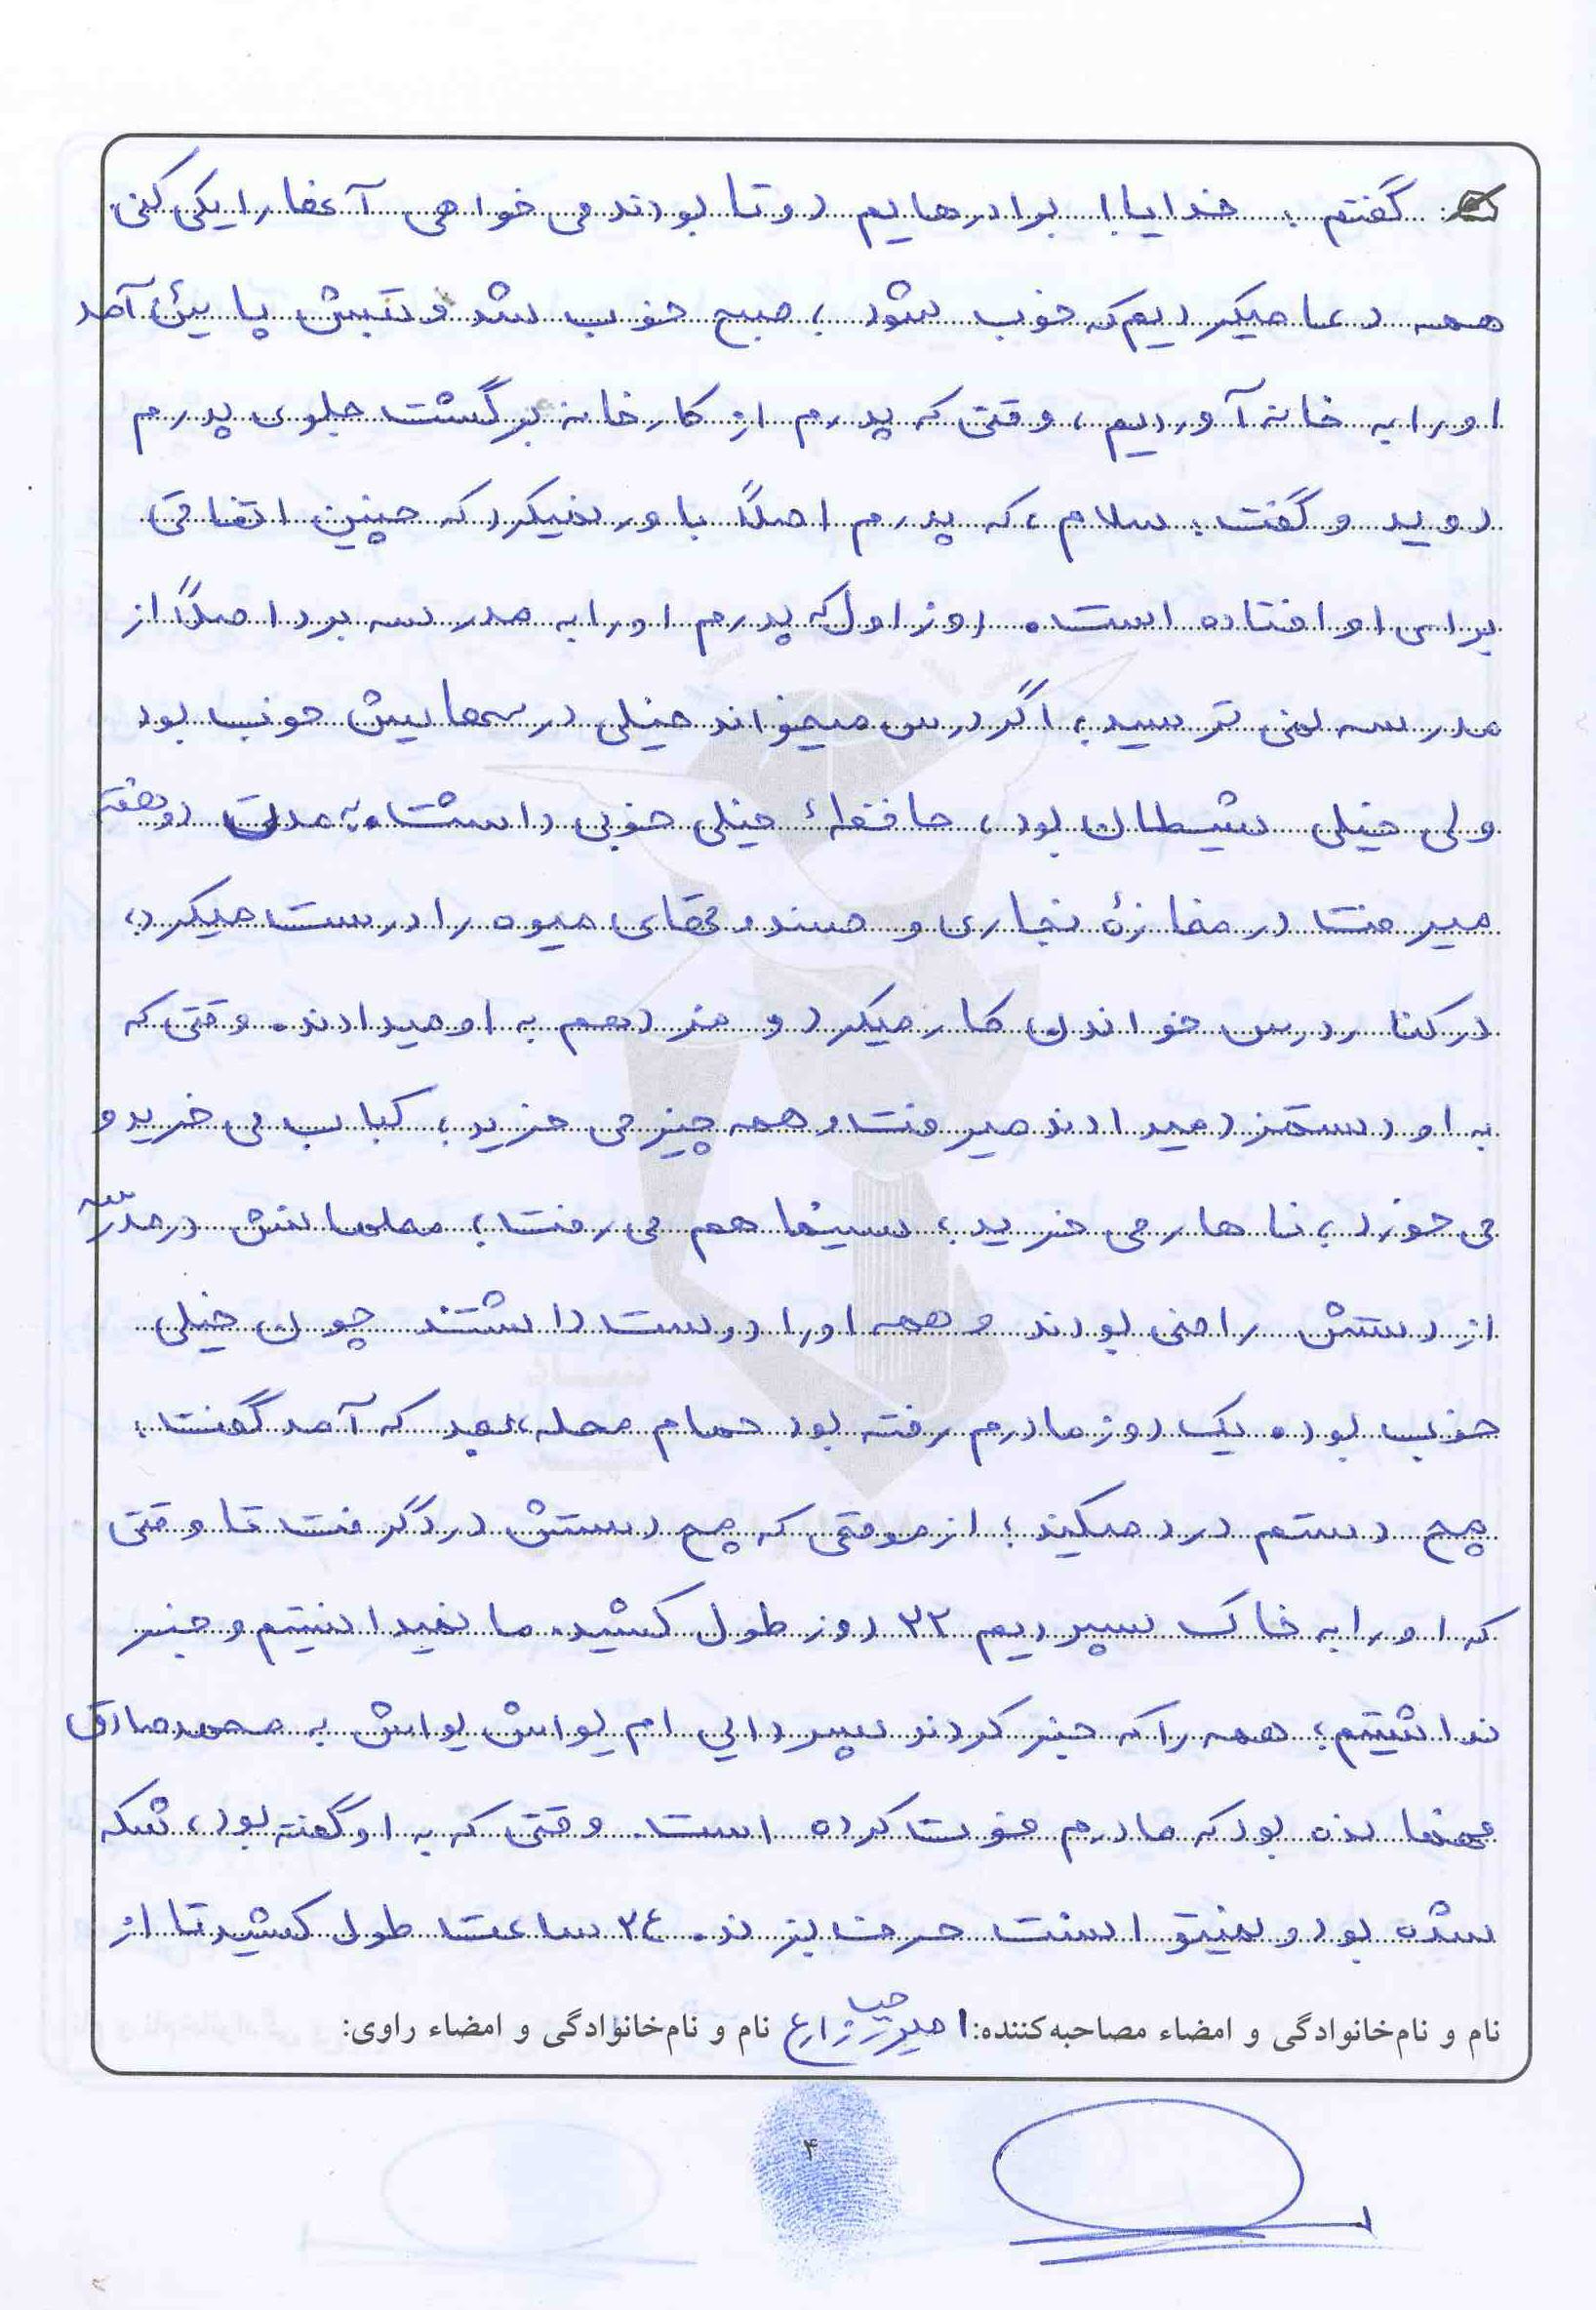 گفتم: خدایا! برادرهایم دوتا بودند می خواهی آنها را یکی کنی
همه دعا میکردیم که خوب شود؛ صبح خوب شد و تبش پایین آمد
او را به خانه آوردیم، وقتی که پدرم از کارخانه برگشت جلوی پدرم
دوید و گفت: سلام، که پدرم اصلاً باور نمیکرد که چنین اتفاقی
برای او افتاده است. روز اول که پدرم او را به مدرسه برد اصلاً از
مدرسه نمی ترسید، اگر درس میخواند خیلی درسهایش خوب بود
ولی خیلی شیطان بود، حافظهٔ خیلی خوبی داشت. به مدت دو هفته
میرفت در مغازهٔ نجاری و صندوقهای میوه را درست میکرد،
در کنار درس خواندن کار میکرد و مزد هم به او میدادند. وقتی که
به او دستمزد میدادند میرفت و همه چیز می خرید، کباب می خرید و
می خورد، ناهار می خرید، سینما هم می رفت؛ معلمانش در مدرسه
از دستش راضی بودند و همه او را دوست داشتند چون خیلی
خوب بود. یک روز مادرم رفته بود حمام محله، بعد که آمد گفت:
مچ دستم درد میکند؛ از موقعی که مچ دستش درد گرفت تا وقتی
که او را به خاک سپردیم ۳۲ روز طول کشید. ما نمیدانستیم و خبر
نداشتیم؛ همه را که خبر کردند پسر دایی ام یواش یواش به محمد صادق
فهمانده بود که مادرم فوت کرده است. وقتی که به او گفته بود، شکه
شده بود و نمیتوانست حرف بزند. ۲۴ ساعت طول کشید تا از
نام و نام‌خانوادگی و امضاء مصاحبه‌کننده: نام و نام‌خانوادگی و امضاء راوی:
۴